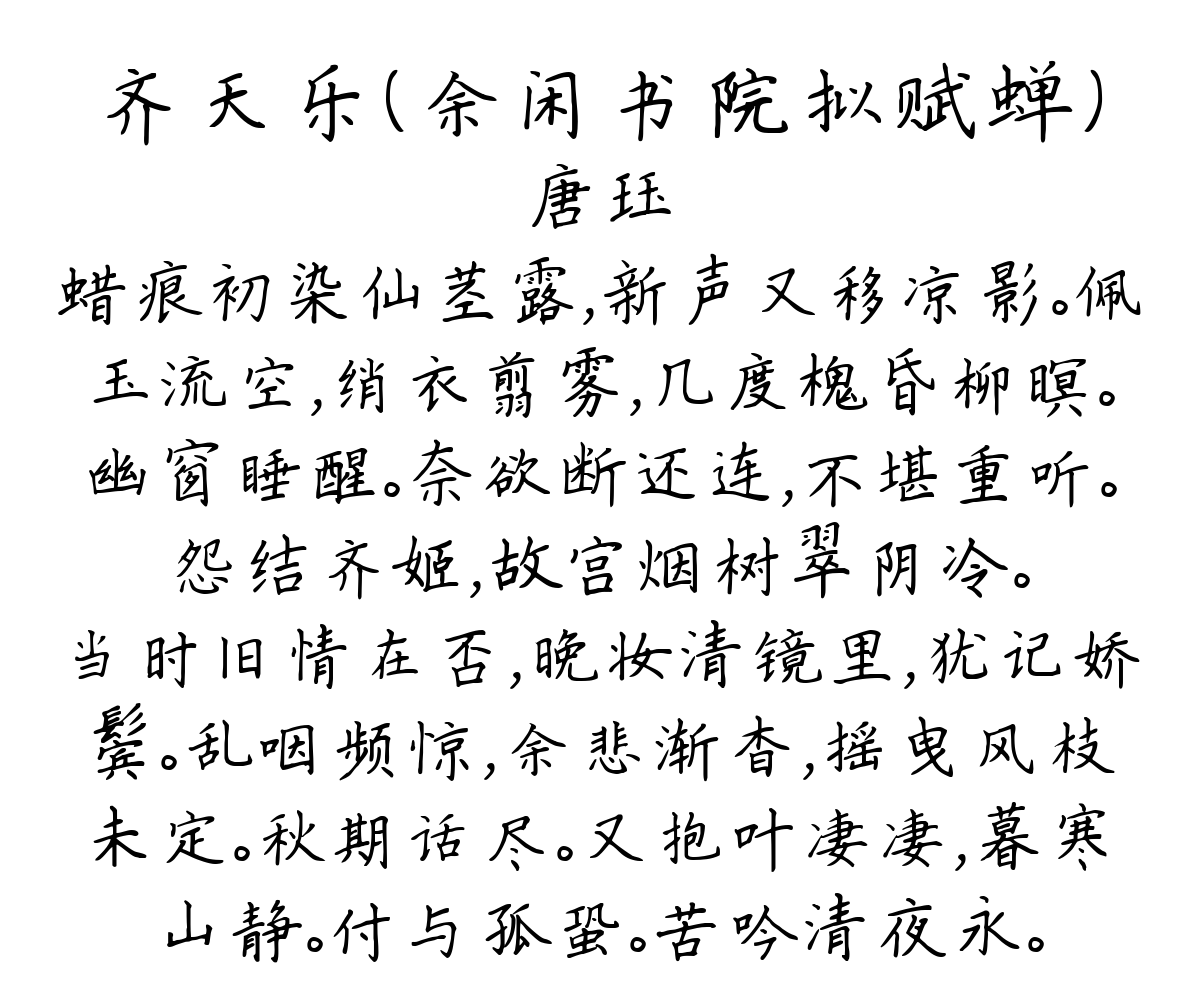 齐天乐(余闲书院拟赋蝉)
唐珏
蜡痕初染仙茎露,新声又移凉影。佩
玉流空,绡衣翦雾,几度槐昏柳暝。
幽窗睡醒。奈欲断还连,不堪重听。
怨结齐姬,故宫烟树翠阴冷。
当时旧情在否,晚妆清镜里,犹记娇
鬓。乱咽频惊,余悲渐杳,摇曳风枝
未定。秋期话尽。又抱叶凄凄,暮寒
山静。付与孤蛩。苦吟清夜永。